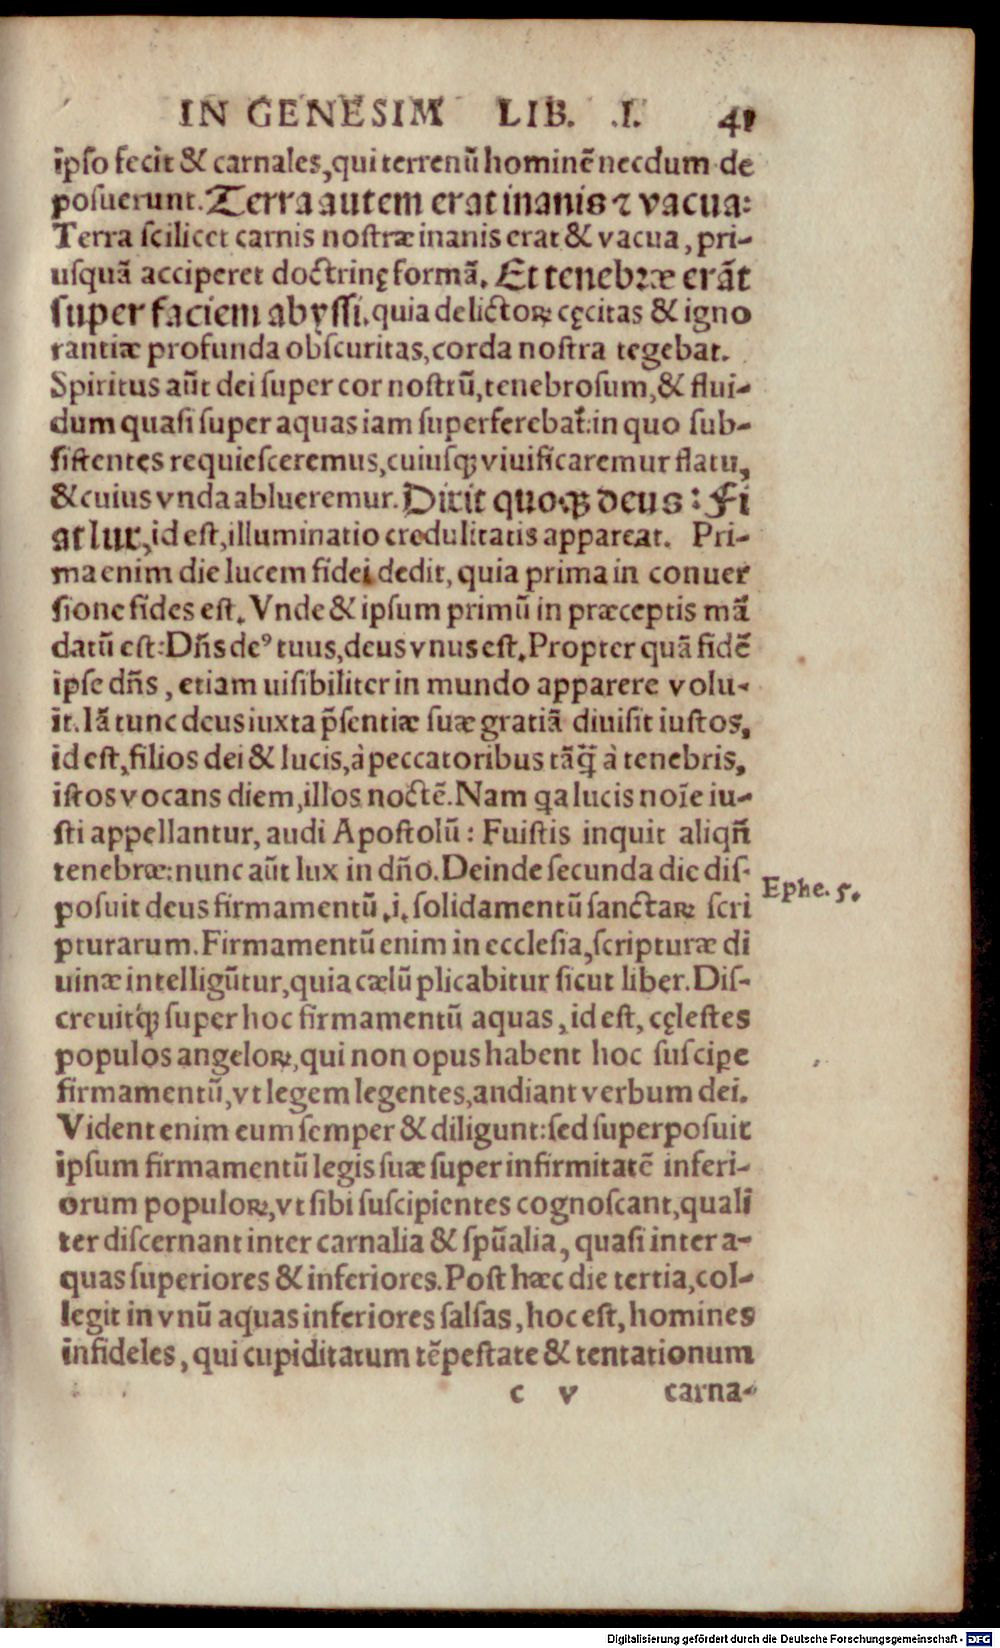 IN GENESIM LIB. .I. 41
ipso fecit & carnales, qui terrenũ hominẽ necdum de
posuerunt. Terra autem erat inanis ⁊ vacua:
Terra scilicet carnis nostræ inanis erat & vacua, pri-
usquã acciperet doctrinę formã. Et tenebꝛæ erãt
super faciem abyssi. quia delictoꝝ cęcitas & igno
rantiæ profunda obscuritas, corda nostra tegebat.
Spiritus aũt dei super cor nostrũ, tenebrosum, & flui-
dum quasi super aquas iam superferebat᷑: in quo sub-
sistentes requiesceremus, cuiusqꝫ viuificaremur flatu,
& cuius vnda ablueremur. Dixit quoqꝫ deus: Fi
at lux, id est, illuminatio credulitatis appareat. Pri-
ma enim die lucem fidei dedit, quia prima in conuer
sione fides est. Vnde & ipsum primũ in præceptis mã
datũ est: Dñs deꝰ tuus, deus vnus est. Propter quã fidẽ
ipse dñs, etiam uisibiliter in mundo apparere volu-
it. Iã tunc deus iuxta p̃sentiæ suæ gratiã diuisit iustos,
id est, filios dei & lucis, à peccatoribus tãq̃ à tenebris,
istos vocans diem, illos noctẽ. Nam qa lucis noĩe iu-
sti appellantur, audi Apostolũ: Fuistis inquit aliqñ
tenebræ: nunc aũt lux in dño. Deinde secunda die dis-
Ephe. 5.
posuit deus firmamentũ .i. solidamentũ sanctaꝝ scri
pturarum. Firmamentũ enim in ecclesia, scripturæ di
uinæ intelligũtur, quia cælũ plicabitur sicut liber. Dis-
creuitqꝫ super hoc firmamentũ aquas, id est, cęlestes
populos angeloꝝ, qui non opus habent hoc suscipe
firmamentũ, vt legem legentes, audiant verbum dei.
Vident enim eum semper & diligunt: sed superposuit
ipsum firmamentũ legis suæ super infirmitatẽ inferi-
orum populoꝝ, vt sibi suscipientes cognoscant, quali
ter discernant inter carnalia & spũalia, quasi inter a-
quas superiores & inferiores. Post hæc die tertia, col-
legit in vnũ aquas inferiores salsas, hoc est, homines
infideles, qui cupiditatum tẽpestate & tentationum
c v carna-
Digitalisierung gefördert durch die Deutsche Forschungsgemeinschaft - DFG